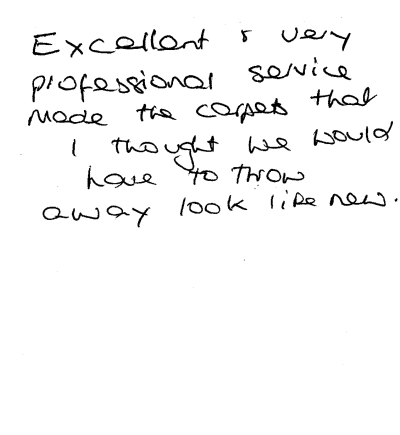 Excellent & very
professional service
Made the carpets that
I thought we would
have to throw
away look like new.